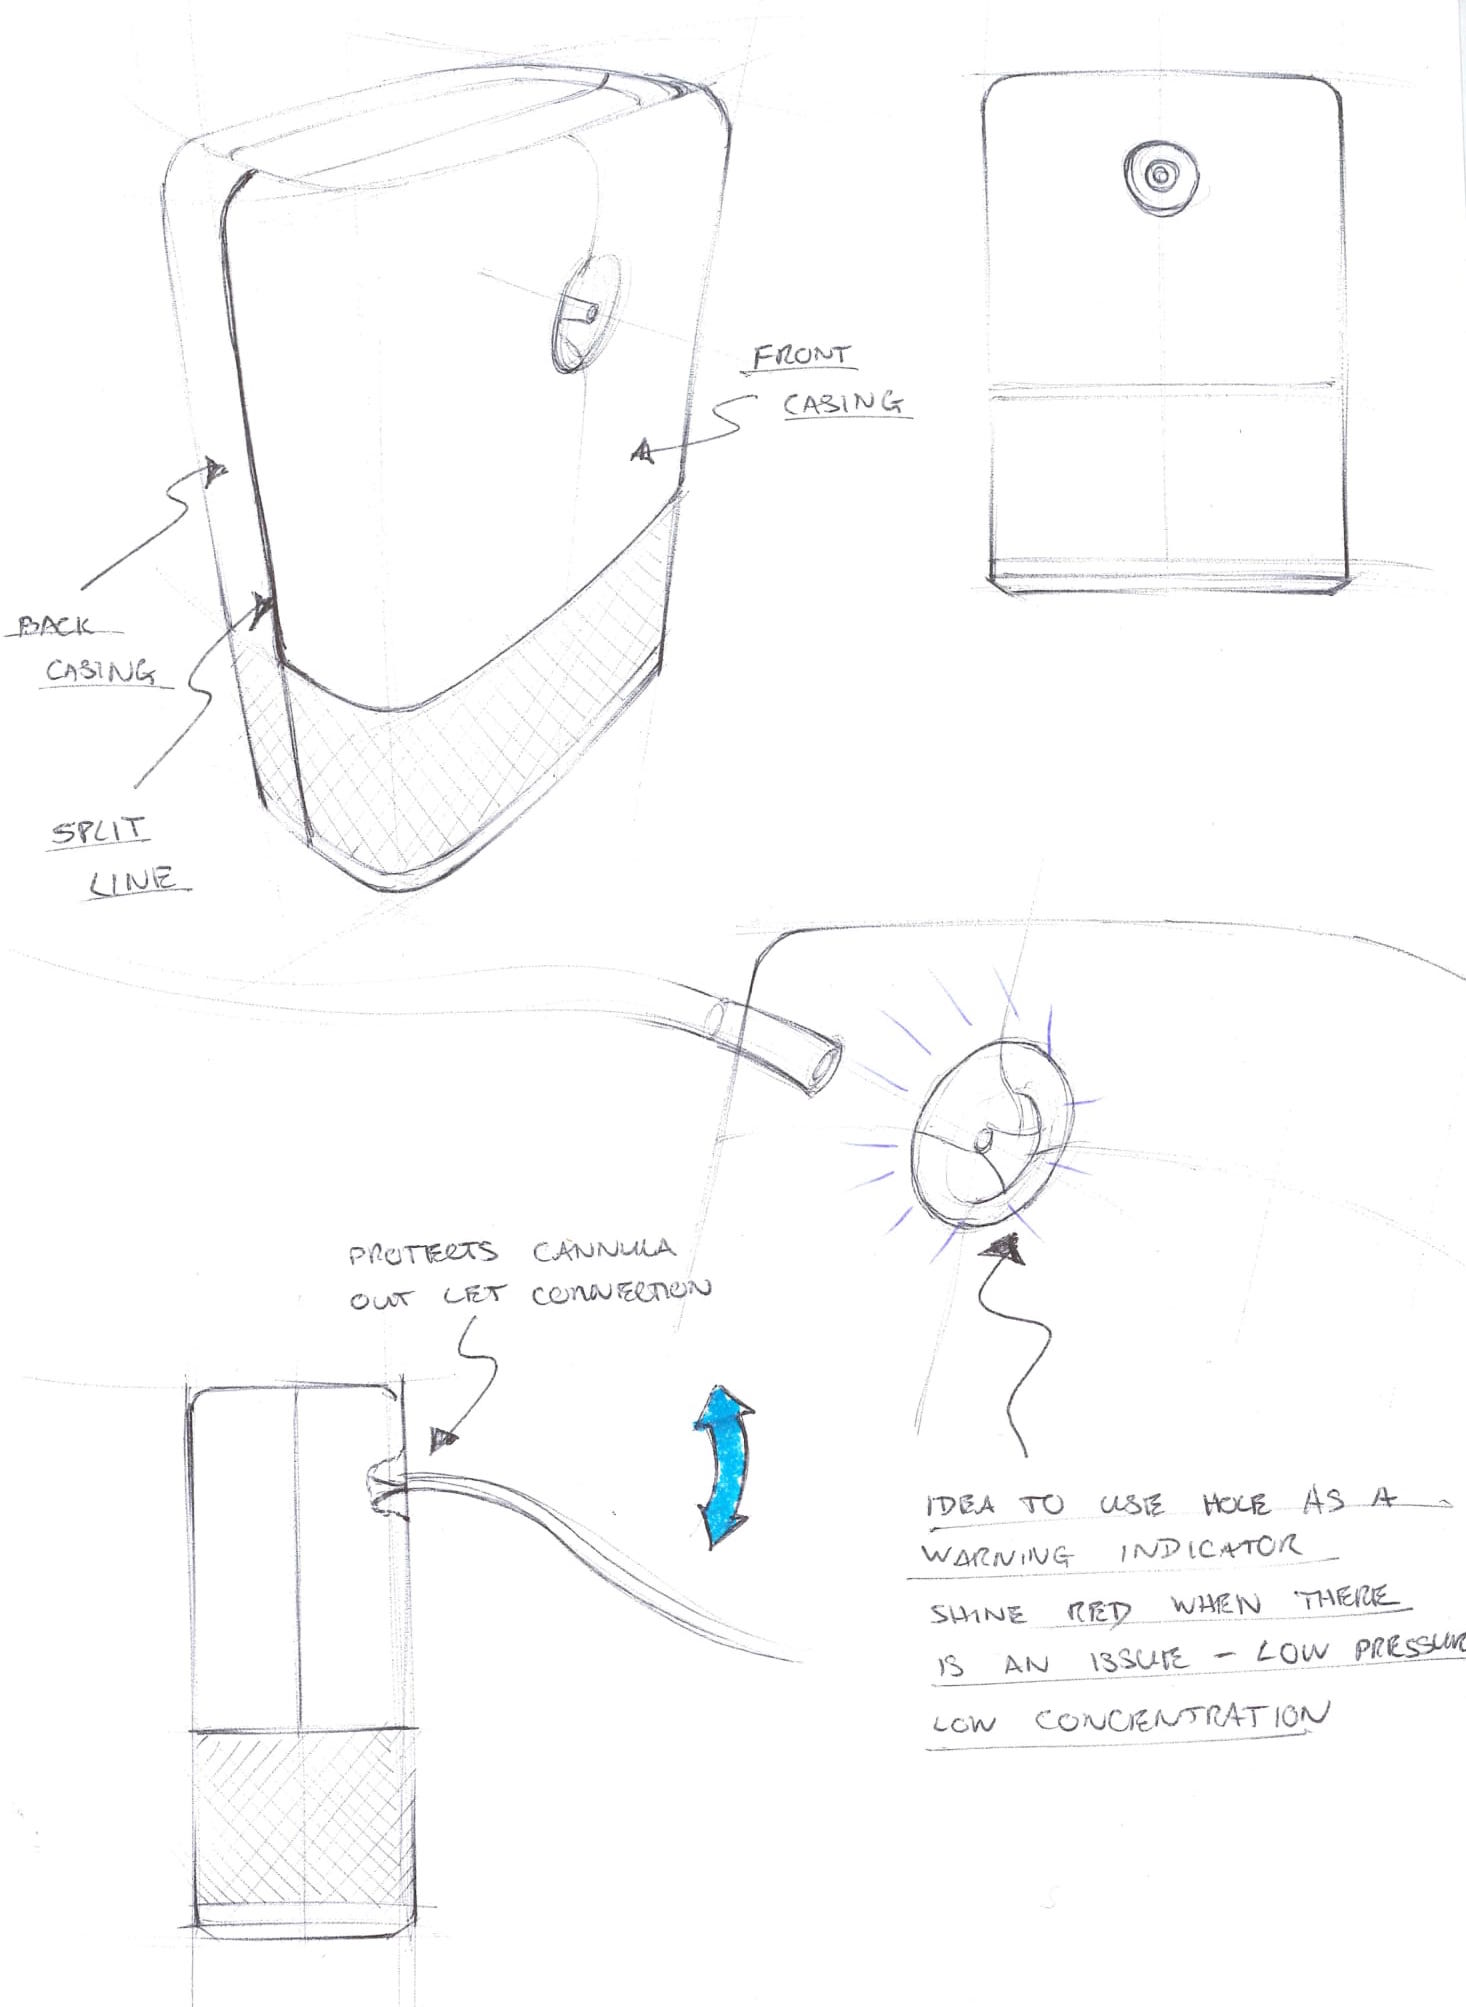 FRONT
CASING
BACK
CASING
SPLIT
LINE
PROTECTS CANNULA
OUT LET CONNECTION
IDEA TO USE HOLE AS A
WARNING INDICATOR
SHINE RED WHEN THERE
IS AN ISSUE - LOW PRESSUR
LOW CONCENTRATION